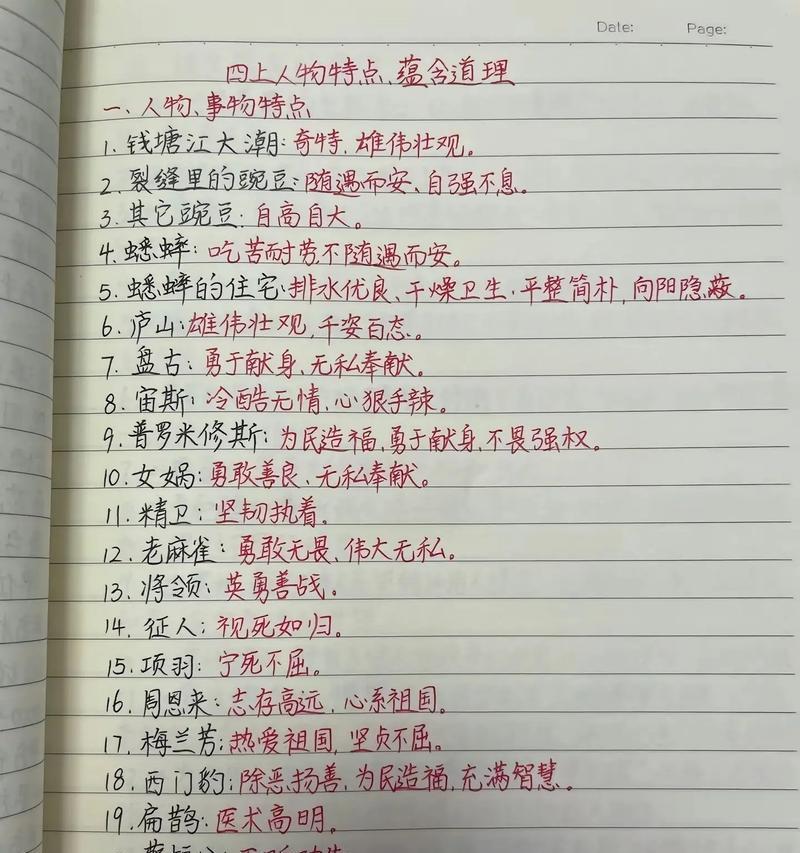 Date: Page:
四上人物特点、蕴含道理
一、人物、事物特点
1. 钱塘江大潮: 奇特, 雄伟壮观。
2. 裂缝里的豌豆: 随遇而安、自强不息。
3. 其它豌豆: 自高自大。
4. 蟋蟀: 吃苦耐劳不随遇而安。
5. 蟋蟀的住宅: 排水优良、干燥卫生. 平整简朴, 向阳隐蔽。
6. 庐山: 雄伟壮观, 千姿百态。
7. 盘古: 勇于献身、无私奉献。
8. 宙斯: 冷酷无情, 心狠手辣。
9. 普罗米修斯: 为民造福, 勇于献身, 不畏强权。
10. 女娲: 勇敢善良、无私奉献。
11. 精卫: 坚韧执着。
12. 老麻雀: 勇敢无畏、伟大无私。
13. 将领: 英勇善战。
14. 征人: 视死如归。
15. 项羽: 宁死不屈。
16. 周恩来: 志存高远, 心系祖国。
17. 梅兰芳: 热爱祖国, 坚贞不屈。
18. 西门豹: 除恶扬善, 为民造福, 充满智慧。
19. 扁鹊: 医术高明。